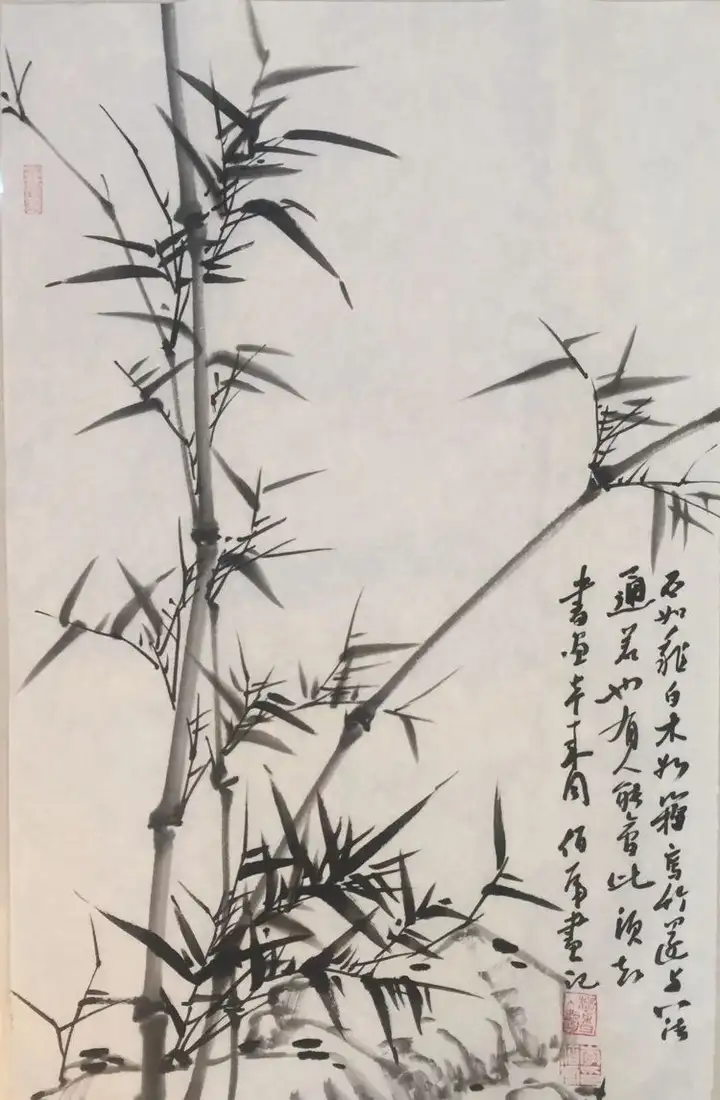 石如飛白木如籀寫竹還与八法
通若也有人能會此須知
書画本來同 伯畫記